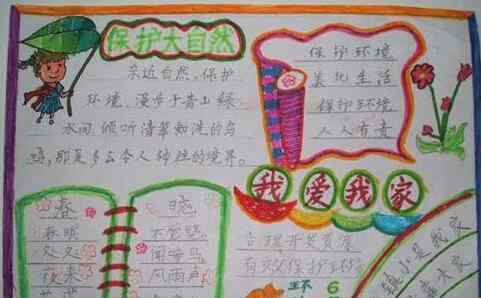 保护大自然
亲近自然,保护
环境,漫步于青山绿
水间,倾听清翠如洗的鸟
鸣,那是多么令人神往的境界。
保护环境
美化生活
保护环境
人人有责
春
春眠
处处
夜来
晓
不觉晓
闻啼鸟
风雨声
我爱我家
合理开发资源
有效保护环境
小是我家